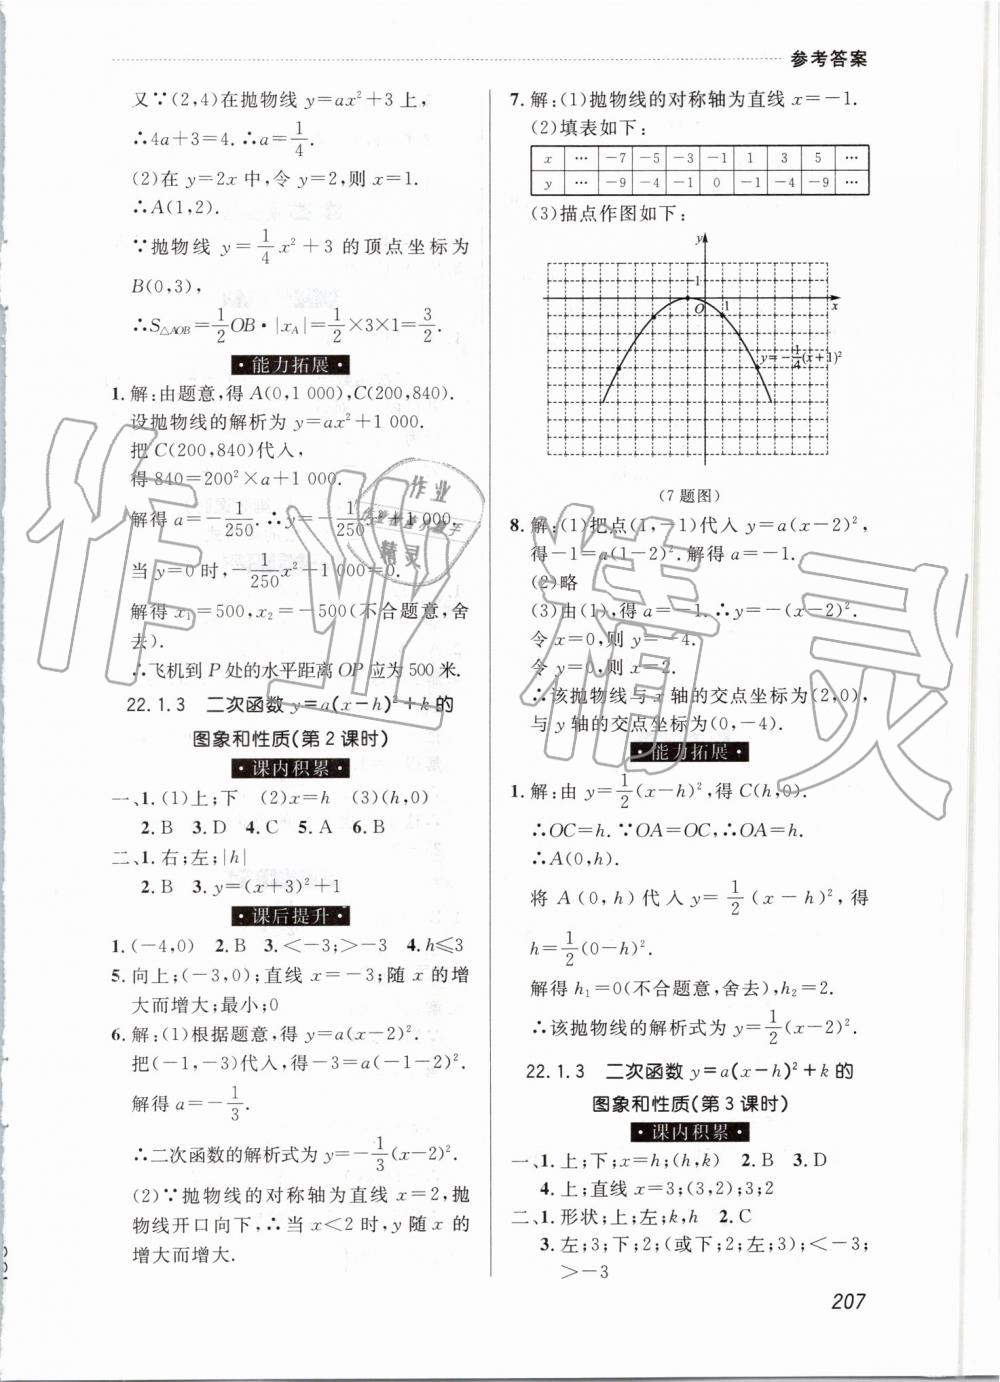 参考答案
又∵(2,4)在抛物线 y=ax²+3 上,
∴4a+3=4.∴a=1/4.
(2)在 y=2x 中,令 y=2,则 x=1.
∴A(1,2).
∵抛物线 y=1/4x²+3 的顶点坐标为
B(0,3),
∴S△AOB=1/2OB·|xA|=1/2×3×1=3/2.
·能力拓展·
1. 解:由题意,得 A(0,1 000),C(200,840).
设抛物线的解析为 y=ax²+1 000.
把 C(200,840)代入,
得 840=200²×a+1 000.
解得 a=-1/250.∴y=-1/250x²+1 000.
当 y=0 时,-1/250x²+1 000=0.
解得 x₁=500,x₂=-500(不合题意,舍
去).
∴飞机到 P 处的水平距离 OP 应为 500 米.
22.1.3 二次函数 y=a(x-h)²+k 的
图象和性质(第 2 课时)
·课内积累·
一、1. (1)上;下 (2)x=h (3)(h,0)
2. B 3. D 4. C 5. A 6. B
二、1. 右;左;|h|
2. B 3. y=(x+3)²+1
·课后提升·
1. (-4,0) 2. B 3. <-3;>-3 4. h≤3
5. 向上;(-3,0);直线 x=-3;随 x 的增
大而增大;最小;0
6. 解:(1)根据题意,得 y=a(x-2)².
把(-1,-3)代入,得-3=a(-1-2)².
解得 a=-1/3.
∴二次函数的解析式为 y=-1/3(x-2)².
(2)∵抛物线的对称轴为直线 x=2,抛
物线开口向下,∴当 x<2 时,y 随 x 的
增大而增大.
7. 解:(1)抛物线的对称轴为直线 x=-1.
(2)填表如下:
x … -7 -5 -3 -1 1 3 5 …
y … -9 -4 -1 0 -1 -4 -9 …
(3)描点作图如下:
y
1
O 1 x
y=-1/4(x+1)²
(7 题图)
8. 解:(1)把点(1,-1)代入 y=a(x-2)²,
得-1=a(1-2)².解得 a=-1.
(2)略
(3)由(1),得 a=-1.∴y=-(x-2)².
令 x=0,则 y=-4.
令 y=0,则 x=2.
∴该抛物线与 x 轴的交点坐标为(2,0),
与 y 轴的交点坐标为(0,-4).
·能力拓展·
1. 解:由 y=1/2(x-h)²,得 C(h,0).
∴OC=h.∵OA=OC,∴OA=h.
∴A(0,h).
将 A(0,h)代入 y=1/2(x-h)²,得
h=1/2(0-h)².
解得 h₁=0(不合题意,舍去),h₂=2.
∴该抛物线的解析式为 y=1/2(x-2)².
22.1.3 二次函数 y=a(x-h)²+k 的
图象和性质(第 3 课时)
·课内积累·
一、1. 上;下;x=h;(h,k) 2. B 3. D
4. 上;直线 x=3;(3,2);3;2
二、1. 形状;上;左;k,h 2. C
3. 左;3;下;2;(或下;2;左;3);<-3;
>-3
207
作业精灵
作业
精灵